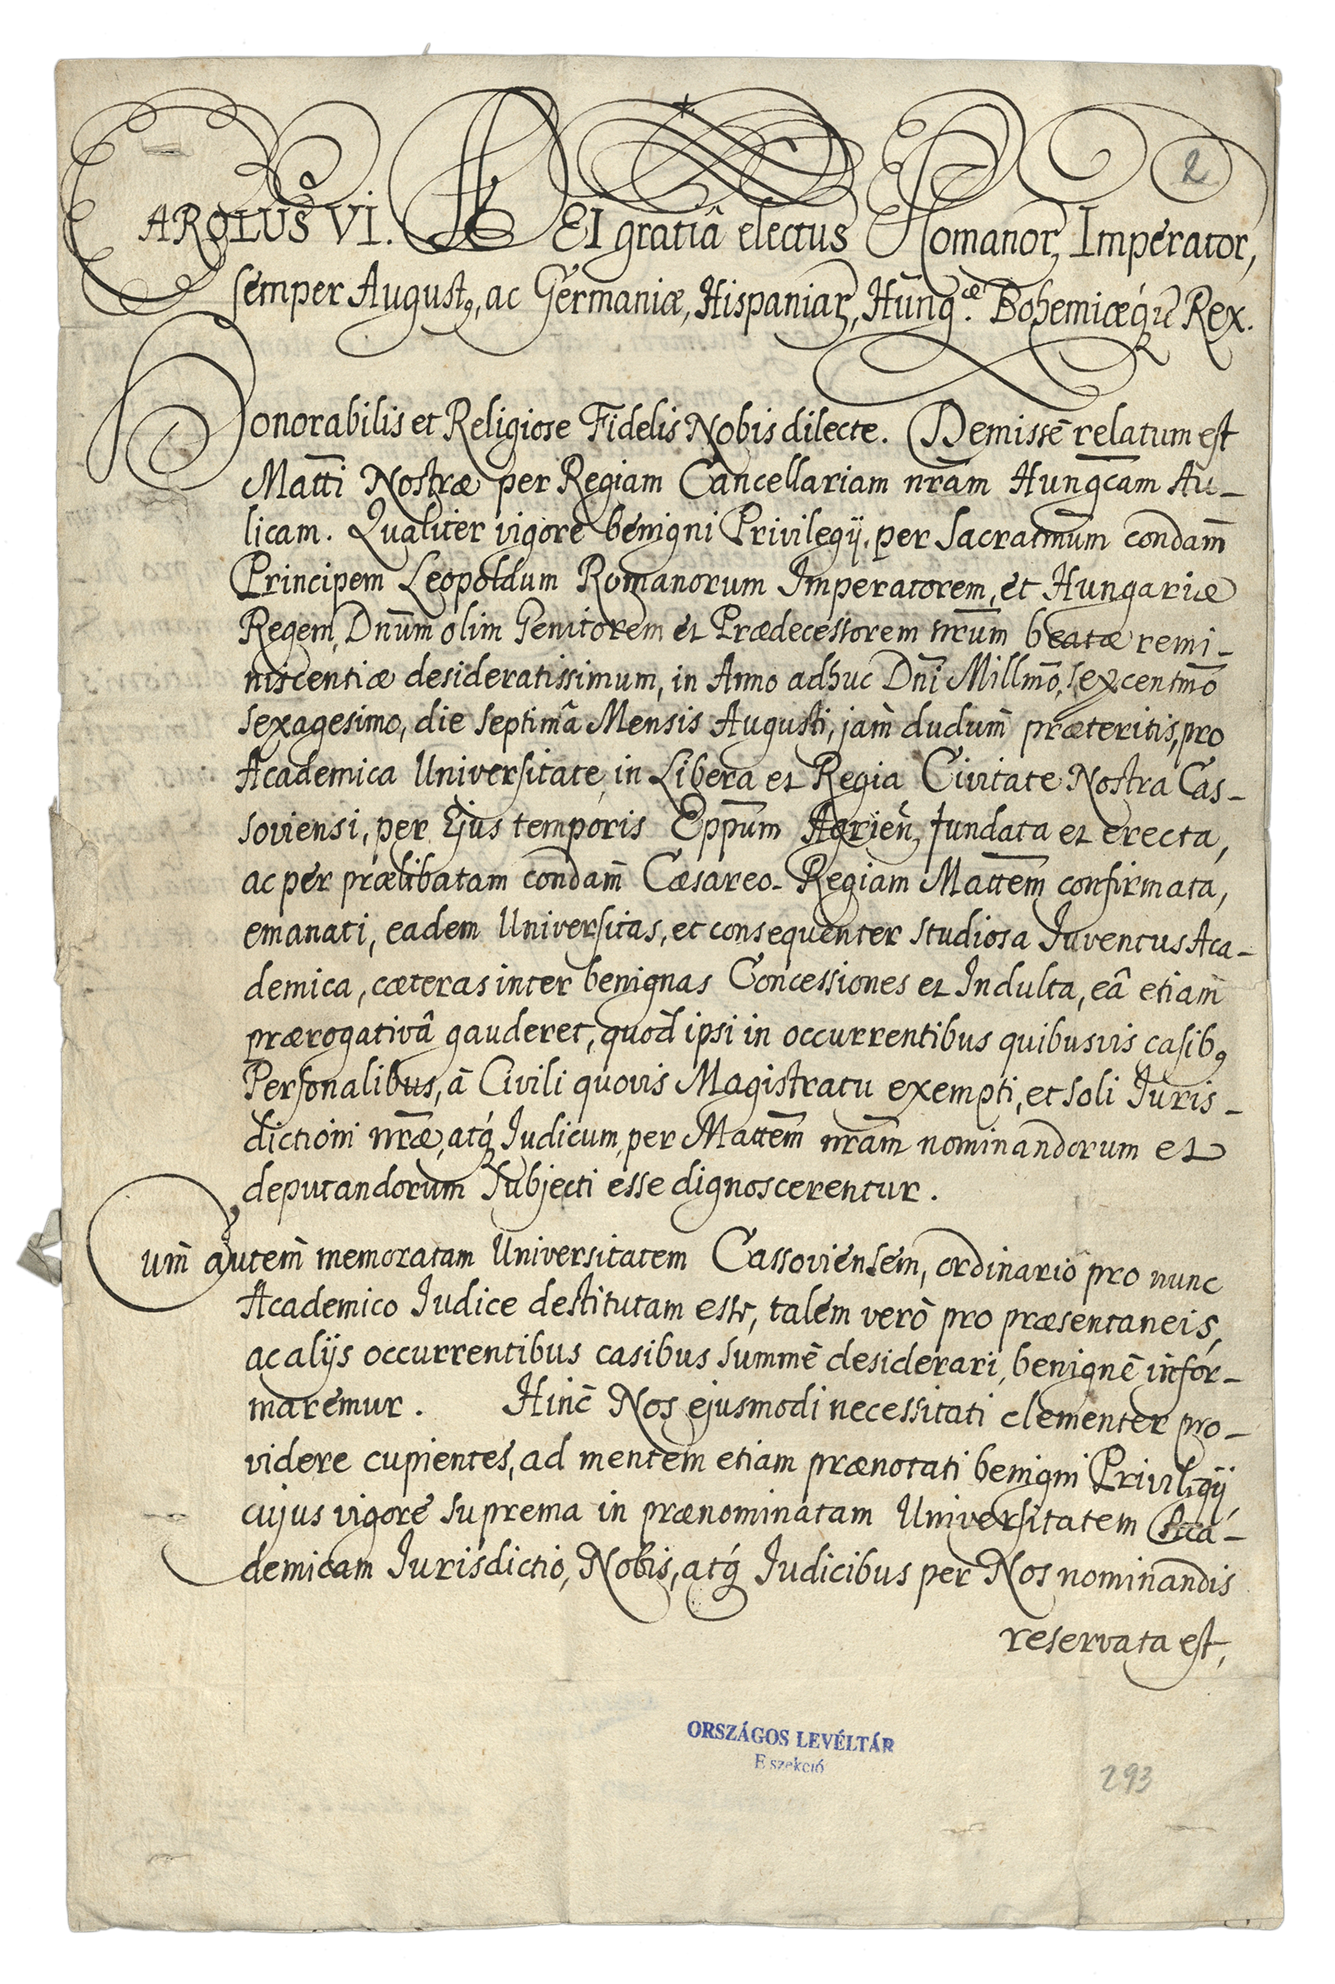 2
CAROLUS VI. DEI gratiâ electus Romanor, Imperator,
semper August9, ac Germaniæ, Hispaniar, Hungcæ. Bohemiæq́ue Rex.
Honorabilis et Religiose Fidelis Nobis dilecte. Demissè relatum est
Matti Nostræ per Regiam Cancellariam nram Hungcam Au-
licam. Qualiter vigore benigni Privilegij, per Sacratmum condam̄
Principem Leopoldum Romanorum Imperatorem, et Hungariæ
Regem, Dnum olim Genitorem et Prædecessorem nrum beatæ remi-
niscentiæ desideratissimum, in Anno adhuc Dni Millmo, sexcentmo
sexagesimo, die septimâ Mensis Augusti, jam̄ dudum̄ præteritis, pro
Academica Universitate, in Libera et Regia Civitate Nostra Cas-
soviensi, per Ejus temporis Eppum Agrien, fundata et erecta,
ac per prælibatam condam̄ Cæsareo-Regiam Mattem confirmata,
emanati, eadem Universitas, et consequenter studiosa Iuventus Aca-
demica, cæteras inter benignas Concessiones et Indulta, eâ etiam̄
prærogativâ gauderet, quod ipsi in occurrentibus quibusvis casib9
Personalibus, à Civili quovis Magistratu exempti, et soli Iuris-
dictioni nræ, atq́ Iudicum, per Mattem nram nominandorum et
deputandorum subjecti esse dignoscerentur.
Cum̄ autem̄ memoratam Universitatem Cassoviensem, ordinario pro nunc
Academico Iudice destitutam esse, talem verò pro præsentaneis,
ac alijs occurrentibus casibus summè desiderari, benignè infor-
maremur. Hinc̄ Nos ejusmodi necessitati clementer pro-
videre cupientes, ad mentem etiam prænotati benigni Privilegij,
cujus vigore suprema in prænominatam Universitatem Aca-
demicam Iurisdictio, Nobis, atq́ Iudicibus per Nos nominandis
reservata est,
ORSZÁGOS LEVÉLTÁR
E szekció
293